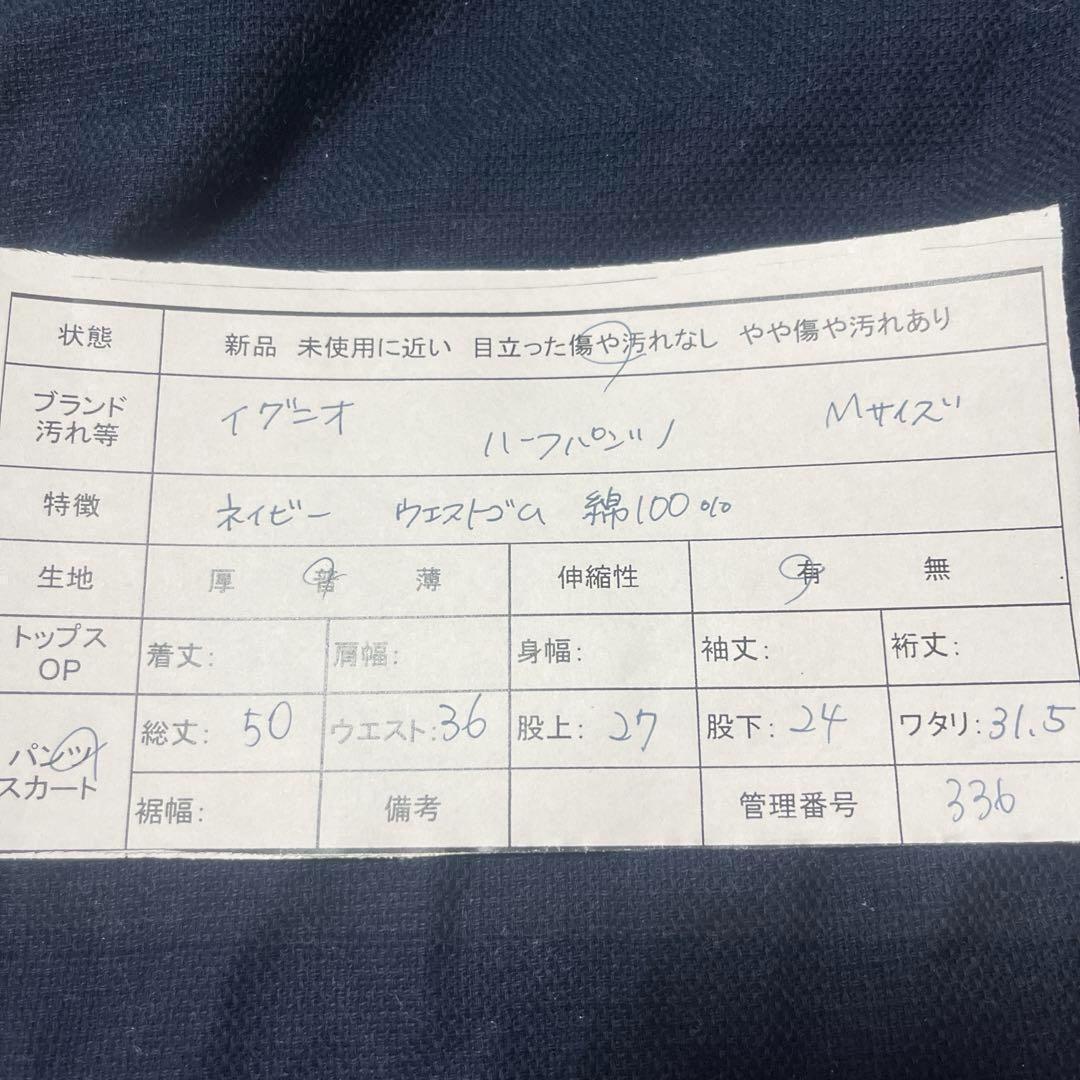 状態 新品 未使用に近い 目立った傷や汚れなし やや傷や汚れあり
ブランド 汚れ等 イグニオ ハーフパンツ Mサイズ
特徴 ネイビー ウエストゴム 綿100%
生地 厚 普 薄 伸縮性 有 無
トップス OP 着丈: 肩幅: 身幅: 袖丈: 裄丈:
パンツ スカート 総丈: 50 ウエスト: 36 股上: 27 股下: 24 ワタリ: 31.5
裾幅: 備考 管理番号 336